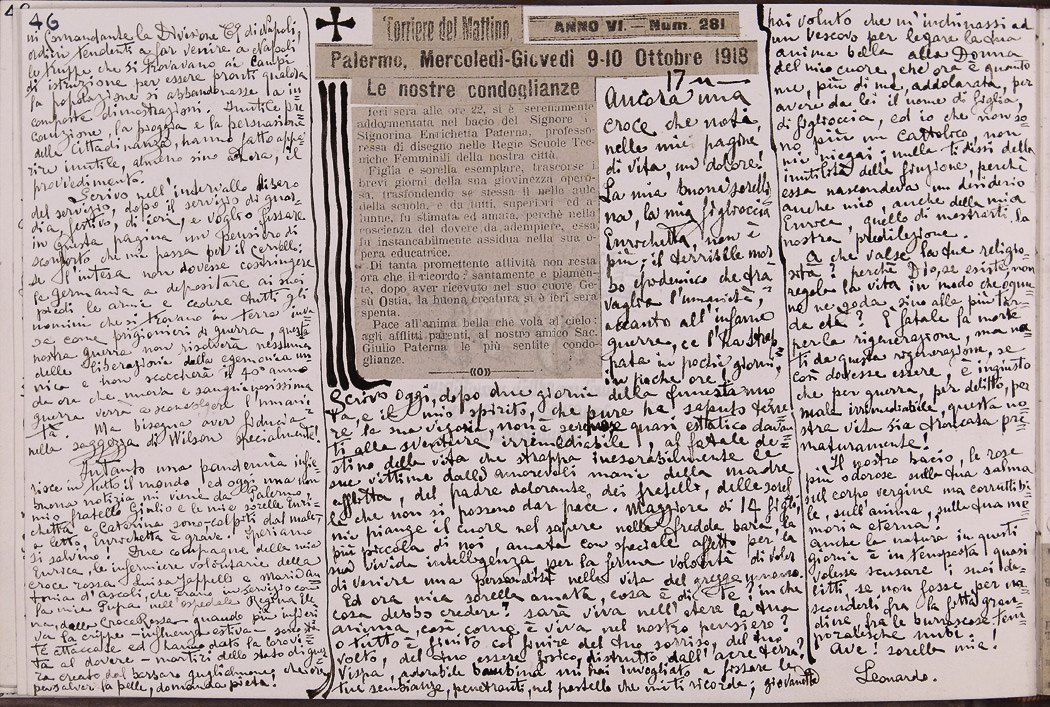 46
ni Comandante la Divisione Ter. di Napoli,
ordini tendenti a far venire a Napoli,
le truppe che si trovavano ai campi
di istruzione per essere pronti qualora
la popolazione si abbandonasse la in=
composte dimostrazioni. Inutile pre=
cauzione, la pioggia e la persuasione
della cittadinanza, hanno fatto appa=
rire inutile, almeno sino ad ora, il
provvedimento.
Scrivo nell'intervallo libero
del servizio, dopo il servizio di guar=
dia festivo, di ieri, e voglio fissare
in questa pagina un pensiero di
sconforto che mi passa per il cervello:
se l'intesa non dovesse costringere
la Germania a depositare ai suoi
piedi le armi e cedere tutti gli
uomini che si trovano in terre inva
se come prigionieri di guerra, questa
nostra guerra non risolverà nessuna
delle liberazioni della egemonia un
nica e non scoccherà il 40° anno
da ora che nuova e sanguinosissima
guerra verrà a sconvolgere l'umani=
tà. Ma bisogna aver fiducia
nella saggezza di Wilson specialmente!
Intanto una pandemia infie=
risce in tutto il mondo ed oggi una non
buona notizia mi viene da Palermo,
mio fratello Giulio e le mie sorelle Enri=
chetta e Caterina sono colpiti dal male
a letto. Enrichetta è grave. Speriamo
si salvino! Due compagne della mia
Enrica, le infermiere volontarie della
Croce rossa Luisa Zappelli e Maridan
tonia d'Ascoli, che erano in servizio con
la mia Pupa nell'Ospedale Regina Ele
na, della Croce Rossa - quando più infieri
va la grippe - influenza estiva - sono sta
te attaccate ed hanno dato la loro vi=
ta al dovere - martiri dello stato di guer
ra creato dal barbaro guglielmone, che ora
per salvar la pelle, domanda pietà!
Corriere del Mattino
ANNO VI. — Num. 281
Palermo, Mercoledì-Giovedì 9-10 Ottobre 1918
Le nostre condoglianze
Ieri sera alle ore 22, si è serenamente
addormentata nel bacio del Signore la
Signorina Enrichetta Paterna, professo-
ressa di disegno nelle Regie Scuole Tec-
niche Femminili della nostra città.
Figlia e sorella esemplare, trascorse i
brevi giorni della sua giovinezza opero-
sa, trasfondendo se stessa il nelle aule
della scuola, e da tutti, superiori ed a
lunne, fu stimata ed amata, perchè nella
coscienza del dovere da adempiere, essa
fu instancabilmente assidua nella sua o-
pera educatrice.
Di tanta promettente attività non resta
ora che il ricordo: santamente e piamen-
te, dopo aver ricevuto nel suo cuore Ge-
sù Ostia, la buona creatura si è ieri sera
spenta.
Pace all'anima bella che volà al cielo;
agli afflitti parenti, al nostro amico Sac.
Giulio Paterna le più sentite condo-
glianze.
«o»
17 —
Ancora una
croce che nota,
nelle mie pagine
di vita, un dolore!
La mia buona sorelli
na, la mia figlioccia
Enrichetta, non è
più; il terribile mor
bo epidemico che tra
vaglia l'umanità,
accanto all'infame
guerra, ce l'ha strap
pata in pochi giorni,
in poche ore!
Scrivo oggi, dopo due giorni della funesta nuo
va, e il mio spirito, che pure ha saputo tene
re, la sua vigoria, non è sereno quasi estatico davan=
ti alla sventura irremediabile, al fatale de=
stino della vita che strappa inesorabilmente le
sue vittime dalle amorevoli mani della madre
afflitta, del padre dolorante, dei fratelli, delle sorel
le che non si possono dar pace. Maggiore di 14 figli,
mi piange il cuore nel sapere nella fredda bara la
più piccola di noi, amata con speciale affetto per la
sua vivida intelligenza, per la ferma volontà di voler
divenire una personalità nella vita del gregge umano.
Ed ora mia sorella amata, cosa è di te? in che
cosa debbo credere? sarà viva nell'etere la tua
anima, così come è viva nel nostro pensiero?
o tutto è finito col finire del tuo sorriso, del tuo
volto, del tuo essere fisico, distrutto dall'aere e terra?
Vispa, adorabile bambina mi hai invogliato a fissare le
tue sembianze, penetranti, nel pastello che mi ti ricorda; giovanetta
hai voluto che m'inchinassi ad
un vescovo per legare la tua
anima bella alla Donna
del mio cuore, che ora è quanto
me, più di me, addolorata, per
avere da lei il nome di figlia,
di figlioccia, ed io che non so=
no più un cattolico, non
mi piegai; nulla ti dissi della
inutilità della funzione, perchè
essa nascondeva un desiderio
anche mio, anche della mia
Enrica, quello di mostrarti la
nostra predilezione.
A che valse la tua religio=
sità? perchè Dio, se esiste, non
regola la vita in modo che ognu=
no ne goda sino alla più tar=
da età? È fatale la morte
per la rigenerazione, ma na=
ti da questa rigenerazione, se
così dovesse essere, è ingiusto
che per guerra, per delitto, per
male irremediabile, questa no=
stra vita sia troncata pre=
maturamente!
Il nostro bacio, le rose
più odorose sulla tua salma
sul corpo vergine ma corruttibi=
le, sull'anima, sulla tua me=
moria eterna!
Anche la natura in questi
giorni è in tempesta, quasi
volesse scusare i suoi de=
litti, se non fosse per na=
sconderli fra la fitta gran=
dine, fra le burrascose tem=
poralesche nubi!
Ave! sorella mia!
Leonardo.